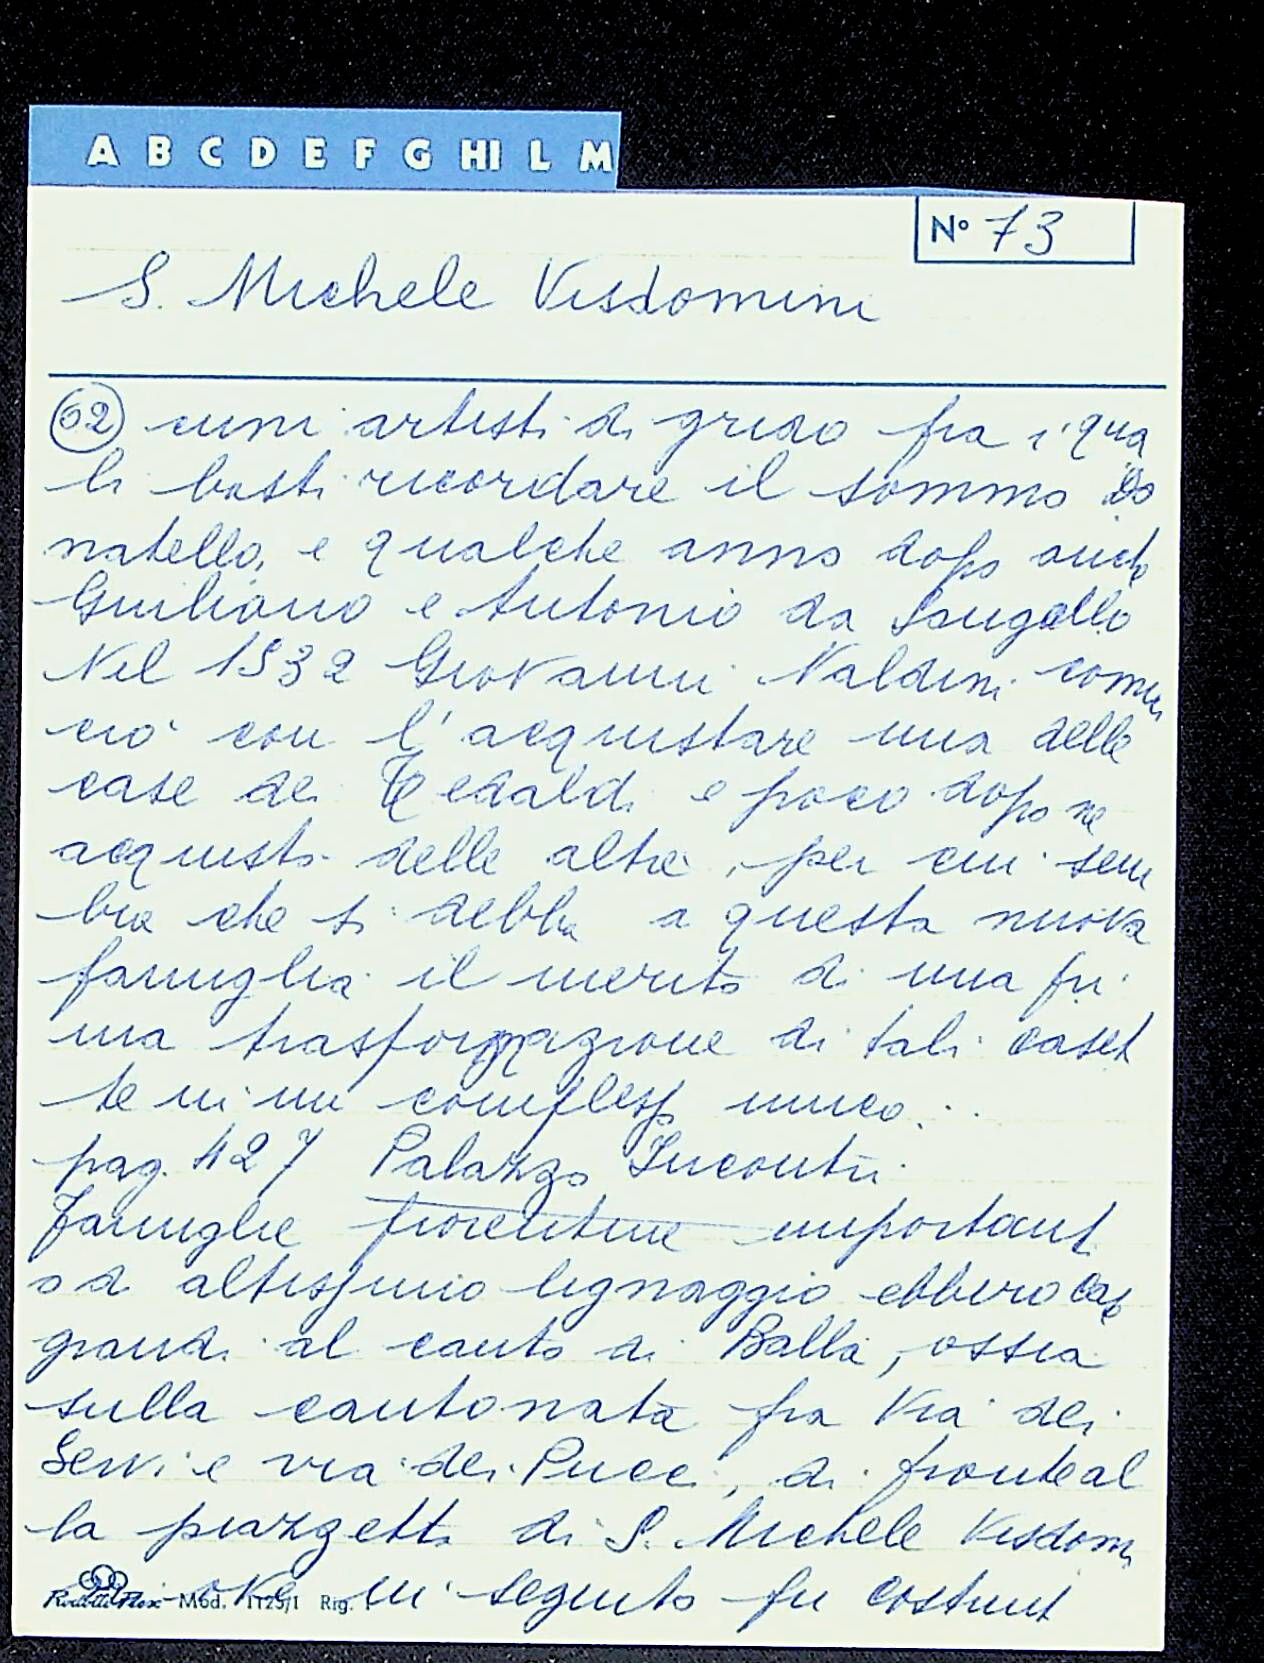 A B C D E F G HI L M
N° 73
S. Michele Visdomini
62 cuni artisti di grido fra i qua
li basti ricordare il sommo Do
natello, e qualche anno dopo anche
Giuliano e Antonio da Sangallo
Nel 1532 Giovanni Naldini comin
ciò con l'acquistare una delle
case dei Tedaldi e poco dopo ne
acquistò delle altre, per cui sem
bra che si debba a questa nuova
famiglia il merito di una pri
ma trasformazione di tali caset
te in un complesso unico...
pag. 427 Palazzo Incontri
Famiglie fiorentine importanti
o di altissimo lignaggio ebbero case
grandi al canto di Balla, ossia
sulla cantonata fra Via dei
Servi e via dei Pucci, di fronte al
la piazzetta di S. Michele Visdomi
ove in seguito fu costruit
Mod. 1125/1 Rig.